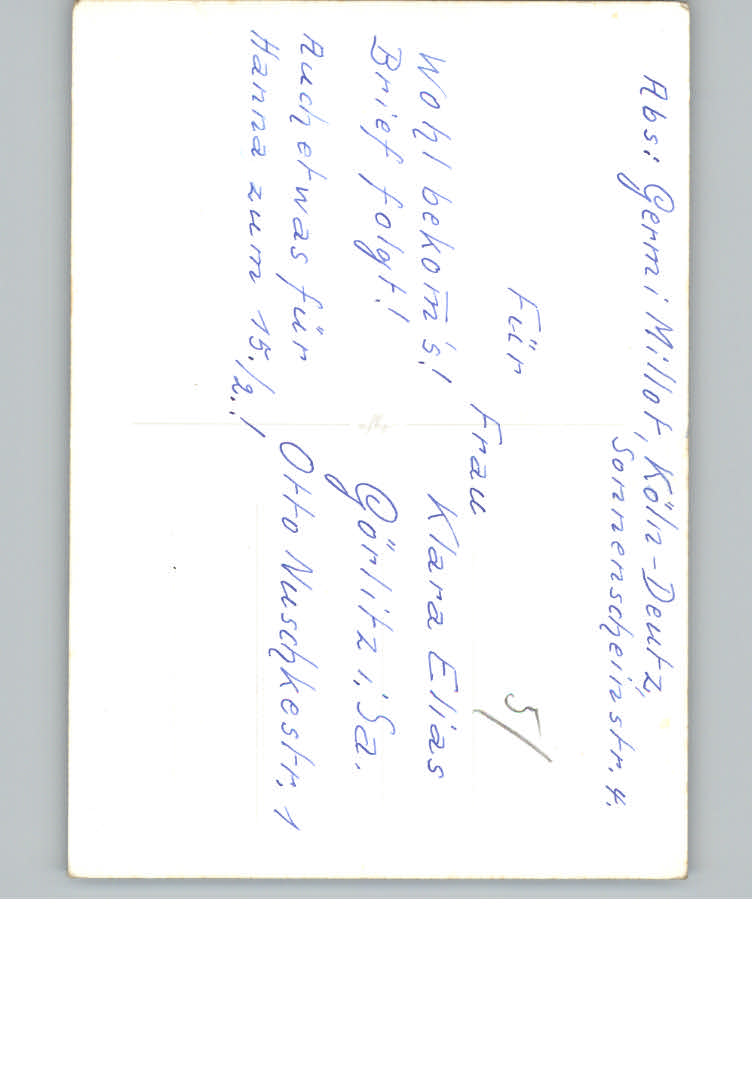 Abs: Germi Millot, Köln-Deutz,
Sonnenscheinstr. 4.
Wohl bekom̅'s!
Brief folgt!
Auch etwas für
Hanna zum 15./2.!
Für
Frau
Klara Elias
Görlitz i. Sa.
Otto Nuschkestr. 1
5/